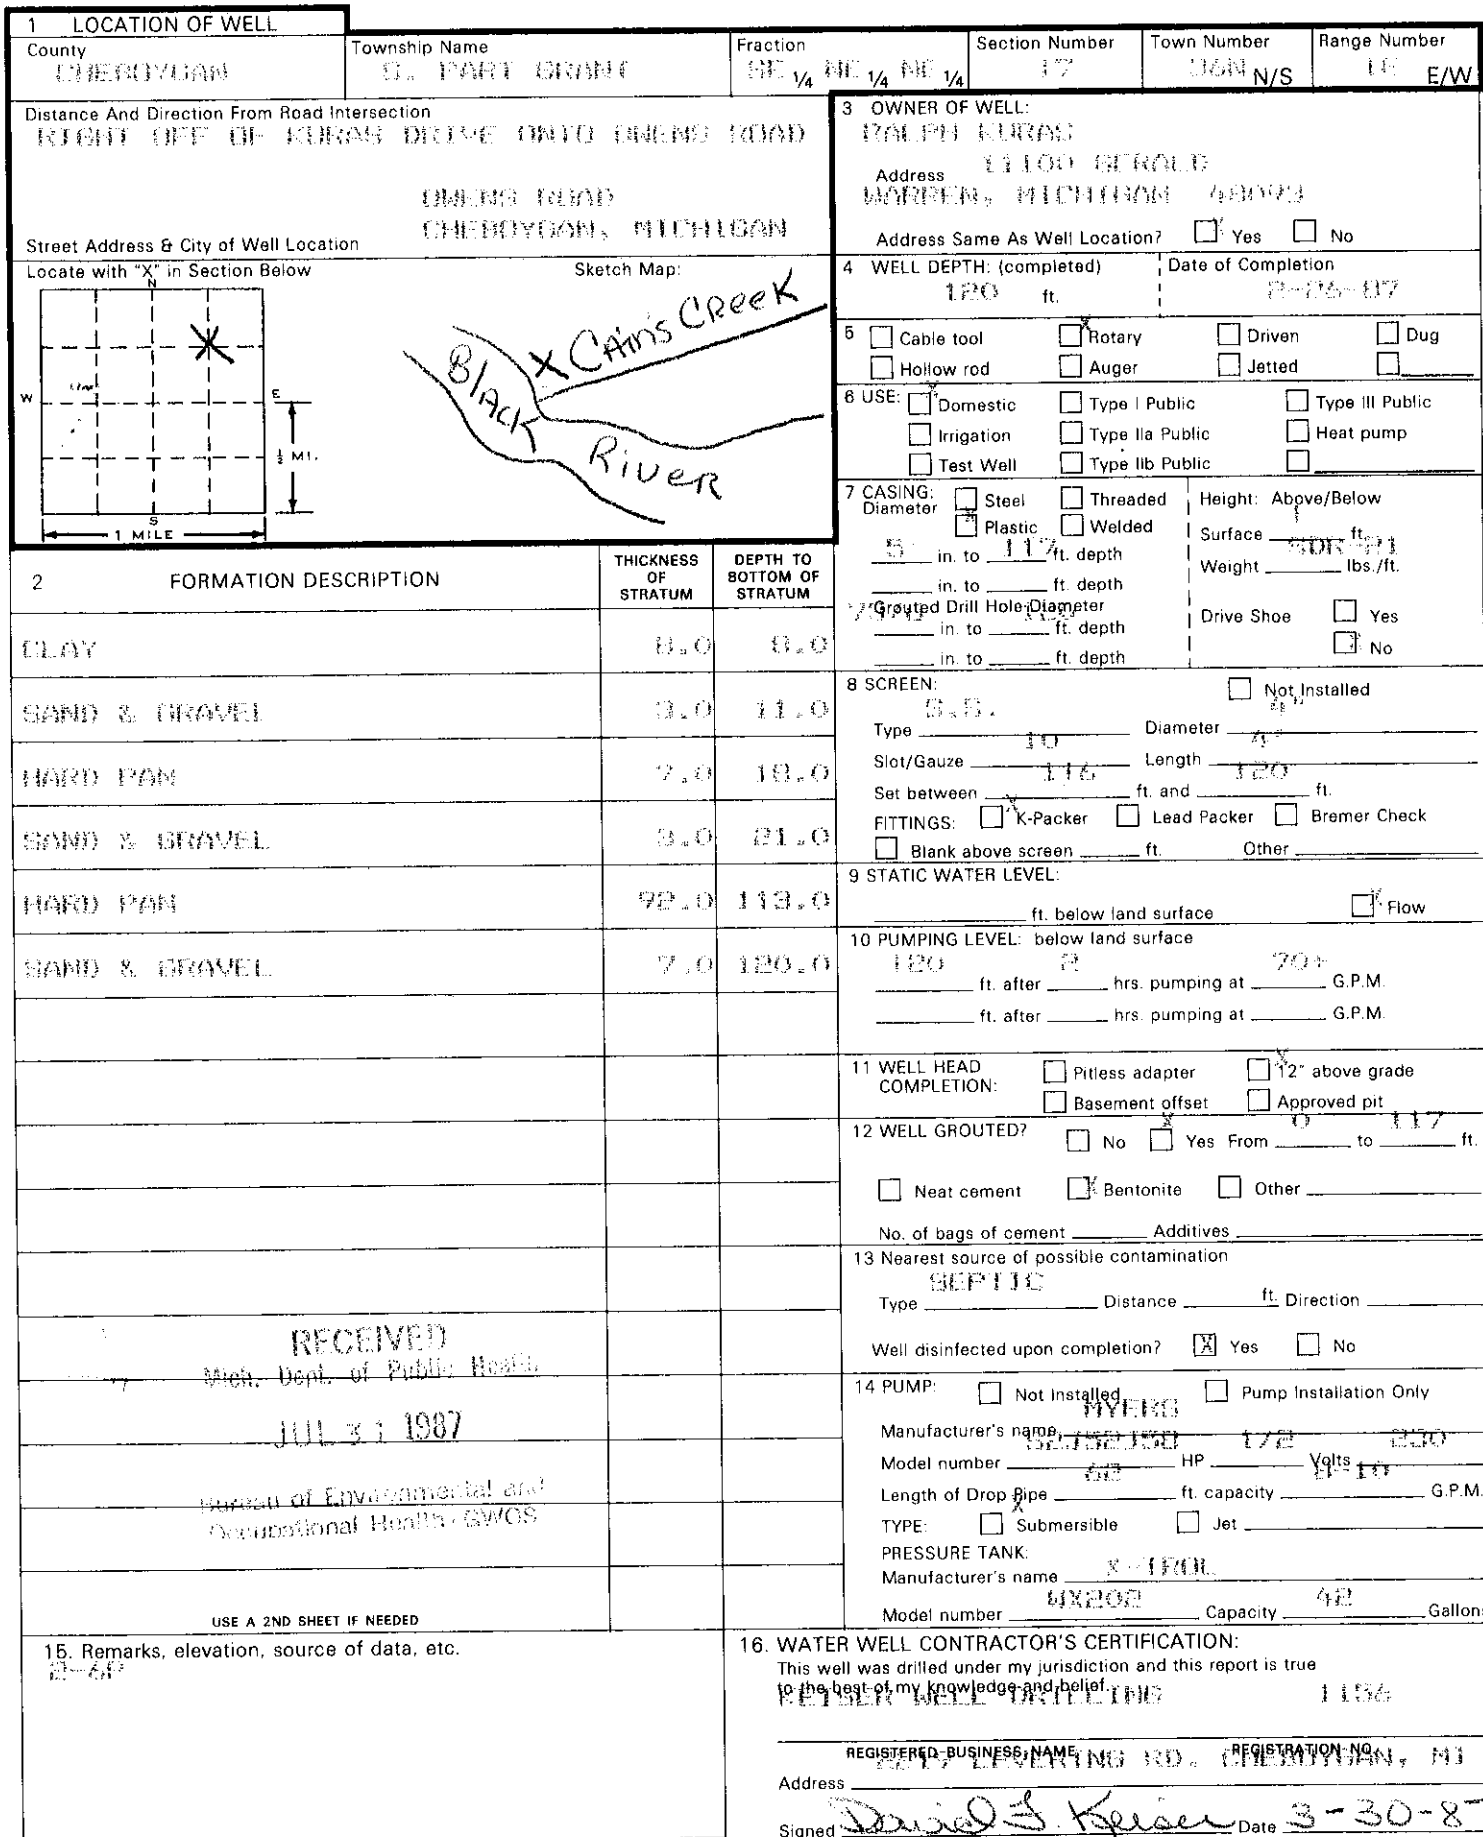 1 LOCATION OF WELL
County
CHEBOYGAN
Township Name
S. PART GRANT
Fraction
1/4 NE 1/4 NE 1/4
Section Number
17
Town Number
36N N/S
Range Number
1E E/W
Distance And Direction From Road Intersection
RIGHT OFF OF KURAS DRIVE ONTO OWENS ROAD
OWENS ROAD
CHEBOYGAN, MICHIGAN
Street Address & City of Well Location
Locate with "X" in Section Below
Sketch Map:
N
W
E
S
½ MI.
1 MILE
X CAin's CReeK
BlAcK
RiveR
3 OWNER OF WELL:
RALPH KURAS
Address 11100 GERALD
WARREN, MICHIGAN 48093
Address Same As Well Location? X Yes No
4 WELL DEPTH: (completed)
120 ft.
Date of Completion
2-26-87
5 Cable tool X Rotary Driven Dug
Hollow rod Auger Jetted
6 USE: X Domestic Type I Public Type III Public
Irrigation Type IIa Public Heat pump
Test Well Type IIb Public
7 CASING: Steel Threaded
Diameter X Plastic Welded
5 in. to 117 ft. depth
in. to ft. depth
Grouted Drill Hole Diameter
in. to ft. depth
in. to ft. depth
Height: Above/Below
Surface 1 ft.
SDR-21
Weight lbs./ft.
Drive Shoe Yes
X No
2 FORMATION DESCRIPTION
THICKNESS OF STRATUM
DEPTH TO BOTTOM OF STRATUM
CLAY 8.0 8.0
SAND & GRAVEL 3.0 11.0
HARD PAN 7.0 18.0
SAND & GRAVEL 3.0 21.0
HARD PAN 92.0 113.0
SAND & GRAVEL 7.0 120.0
8 SCREEN: Not Installed
Type S.S. Diameter 4"
Slot/Gauze 10 Length 4'
Set between 116 ft. and 120 ft.
FITTINGS: X K-Packer Lead Packer Bremer Check
Blank above screen ft. Other
9 STATIC WATER LEVEL:
ft. below land surface X Flow
10 PUMPING LEVEL: below land surface
120 ft. after 2 hrs. pumping at 70+ G.P.M.
ft. after hrs. pumping at G.P.M.
11 WELL HEAD COMPLETION: Pitless adapter X 12" above grade
Basement offset Approved pit
12 WELL GROUTED? No X Yes From 0 to 117 ft.
Neat cement X Bentonite Other
No. of bags of cement Additives
13 Nearest source of possible contamination
Type SEPTIC Distance ft. Direction
Well disinfected upon completion? X Yes No
14 PUMP: Not Installed Pump Installation Only
Manufacturer's name MYERS
Model number HP 1/2 Volts 230
Length of Drop Pipe ft. capacity G.P.M.
TYPE: X Submersible Jet
PRESSURE TANK:
Manufacturer's name X-TROL
Model number WX202 Capacity 42 Gallons
RECEIVED
Mich. Dept. of Public Health
JUL 31 1987
Bureau of Environmental and
Occupational Health-GWOS
USE A 2ND SHEET IF NEEDED
15. Remarks, elevation, source of data, etc.
16. WATER WELL CONTRACTOR'S CERTIFICATION:
This well was drilled under my jurisdiction and this report is true
to the best of my knowledge and belief.
KEISER WELL DRILLING 1156
REGISTERED BUSINESS NAME REGISTRATION NO.
LEVERING RD. CHEBOYGAN, MI
Address
Signed David J. Keiser Date 3-30-8